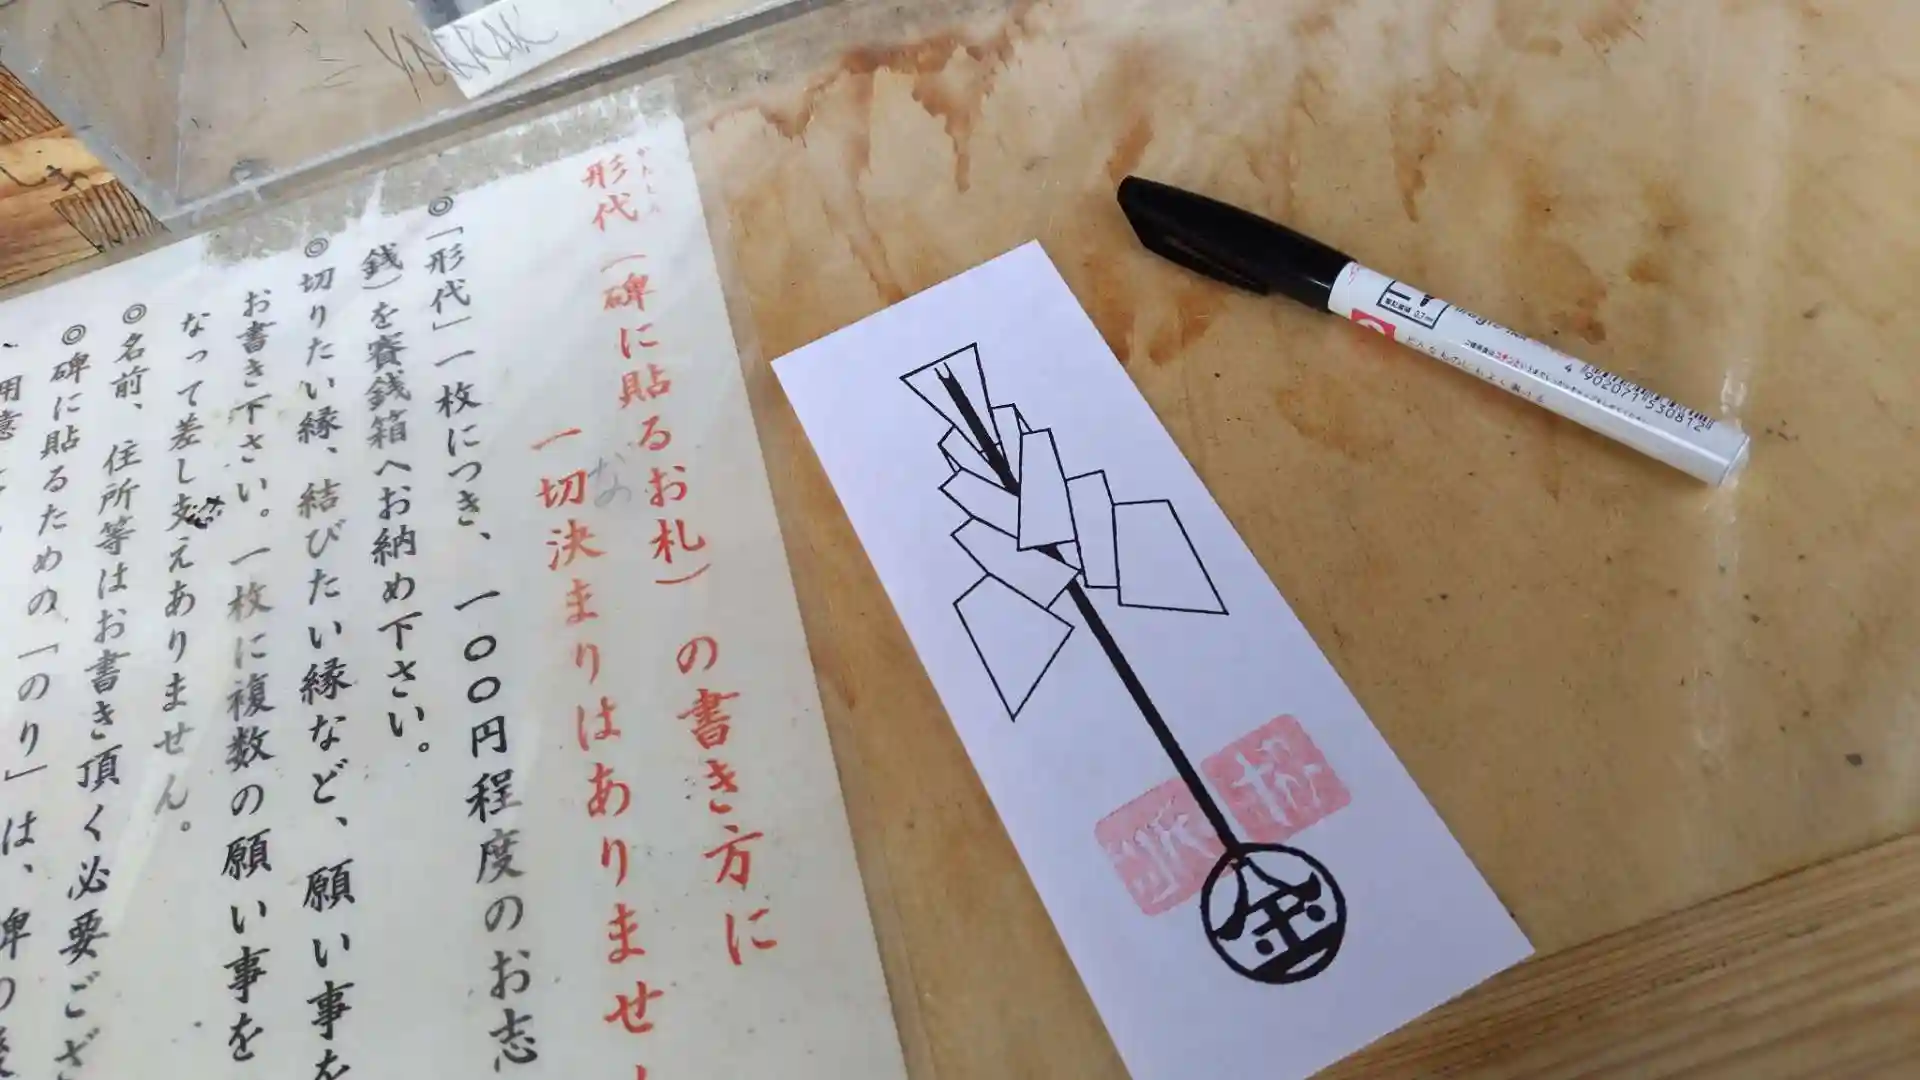 形代(碑に貼るお札)の書き方に
一切決まりはありませ
◎「形代」一枚につき、一〇〇円程度のお志
銭)を賽銭箱へお納め下さい。
◎切りたい縁、結びたい縁など、願い事を
お書き下さい。一枚に複数の願い事を
なって差し支えありません。
◎名前、住所等はお書き頂く必要ござ
◎碑に貼るための「のり」は、碑の
用意
金
どんなものにもよく書ける
4 902071 530812